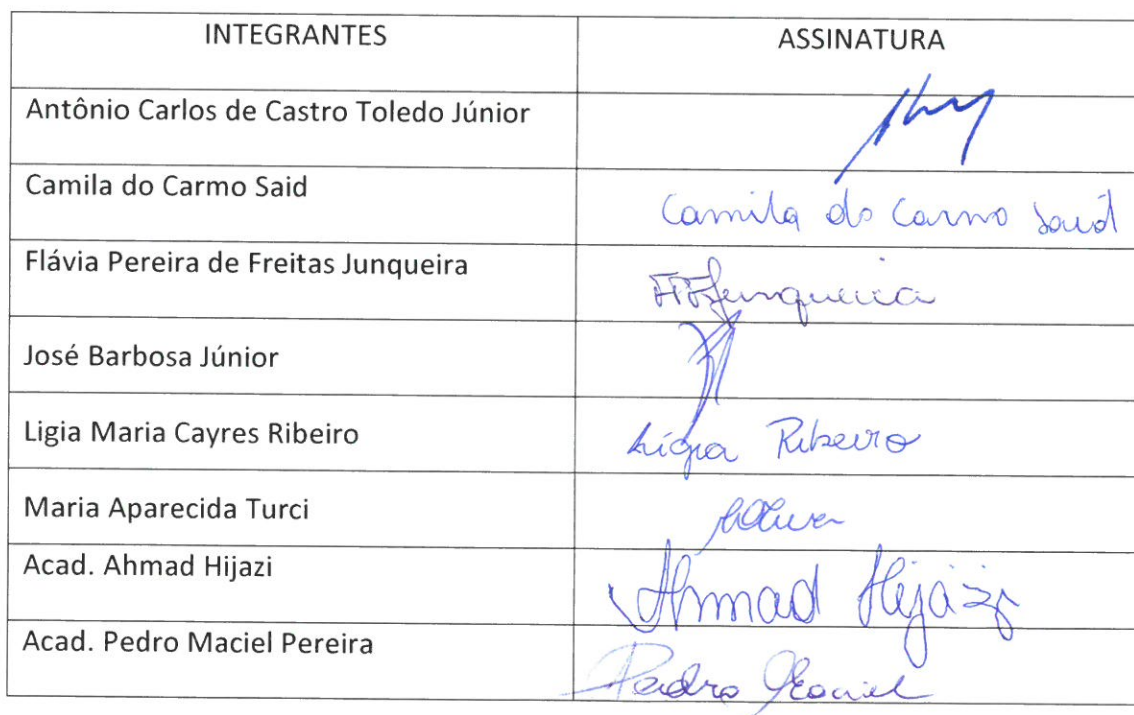 INTEGRANTES ASSINATURA
Antônio Carlos de Castro Toledo Júnior
Camila do Carmo Said Camila do Carmo Said
Flávia Pereira de Freitas Junqueira FPFJunqueira
José Barbosa Júnior
Ligia Maria Cayres Ribeiro Lígia Ribeiro
Maria Aparecida Turci
Acad. Ahmad Hijazi Ahmad Hijazi
Acad. Pedro Maciel Pereira Pedro Maciel